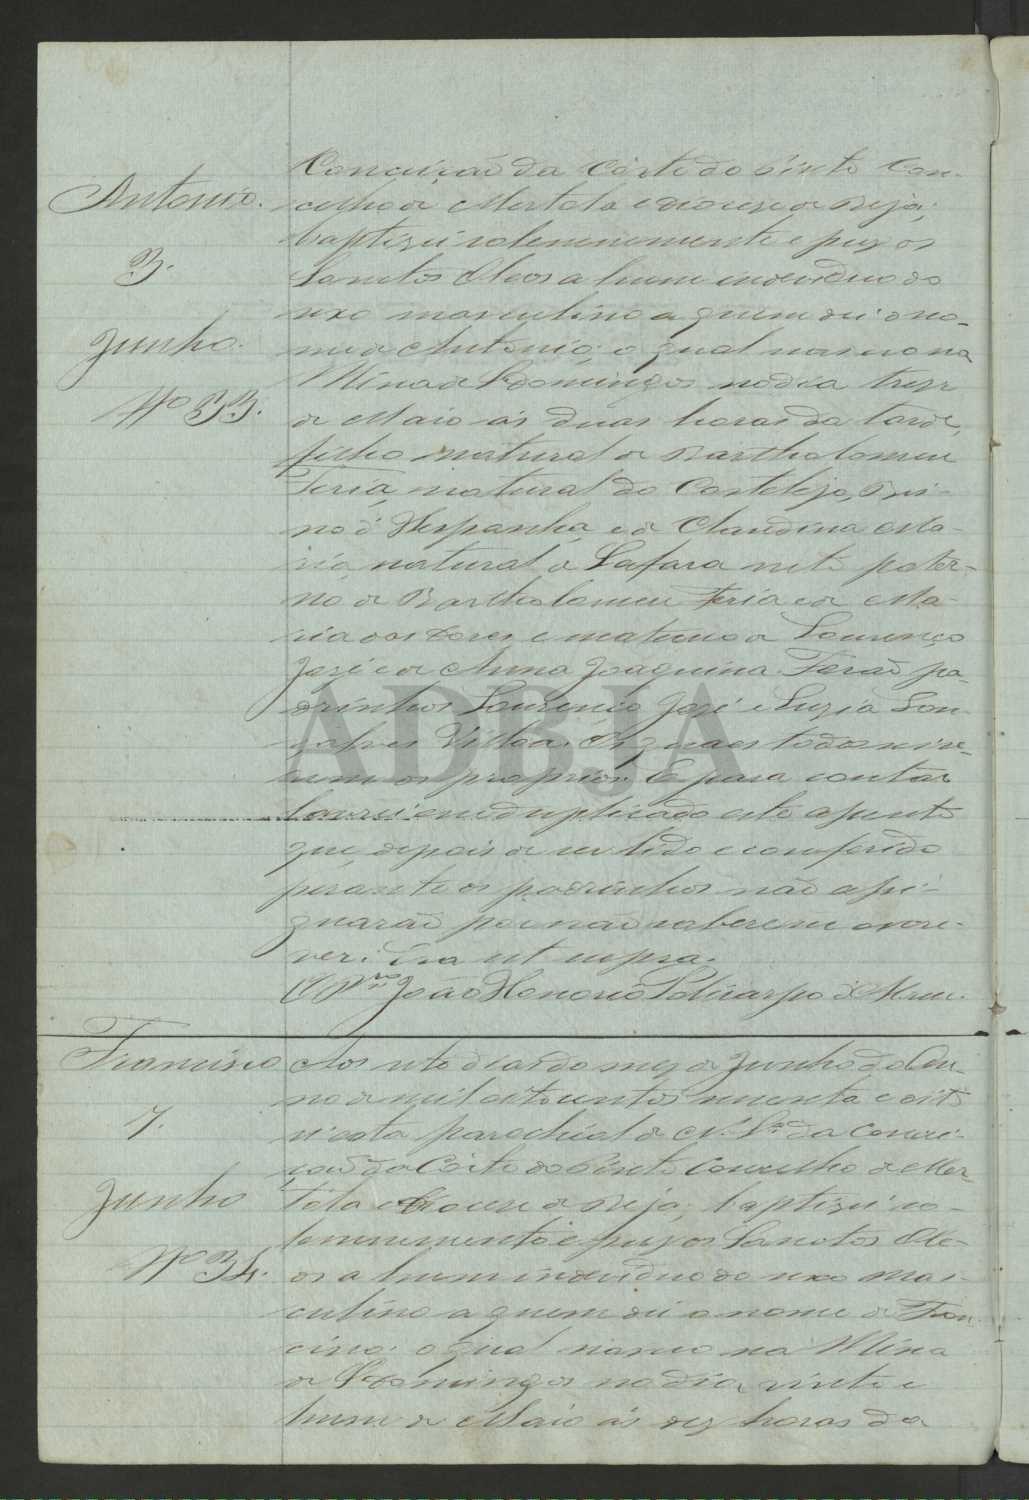 Antonio.
3.
Junho.
Nº 33.
Conceição da Côrte do Pinto Con-
celho de Mertola e diocese de Beja;
baptizei solemnemente e puz os
Sanctos Oleos a hum individuo do
sexo masculino a quem dei o no-
me de Antonio; o qual nasceo na
Mina de S. Domingos no dia treze
de Maio ás duas horas da tarde,
filho natural de Bartholomeu
Feria, natural do Castelejo, Rei-
no d'Hespanha, e de Claudina Ma-
ria, natural de Safara neto pater-
no de Bartholomeu Feria e de Ma-
ria das Dores, e materno de Lourenço
José e de Anna Joaquina. Forão pa-
drinhos Lourenço José e Luzia Gon-
çalves Os quaes todos
serem os proprios. E para constar
lavrei em duplicado este assento
que, depois de ser lido e conferido
perante os padrinhos não assi-
gnarão por não saberem escre-
ver. Era ut supra.
O João Honorio Policarpo
Francisco
7.
Junho
Nº 34.
Aos sete dias do mez de Junho do An-
no de mil oitocentos noventa e oito
n'esta parochial de N. Srª da Concei-
ção da Côrte do Pinto Concelho de Mer-
tola e Diocese de Beja; baptizei so-
lemnemente e puz os Sanctos Ole-
os a hum individuo do sexo mas-
culino a quem dei o nome de Fran-
cisco: o qual nasceo na Mina
de S. Domingos no dia vinte e
hum de Maio ás dez horas da
ADBJA